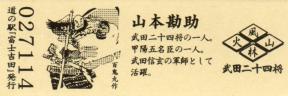 道の駅「富士吉田」発行
027114
百鬼丸作
山本勘助
武田二十四将の一人。
甲陽五名臣の一人。
武田信玄の軍師として
活躍。
風
火 山
林
武田二十四将